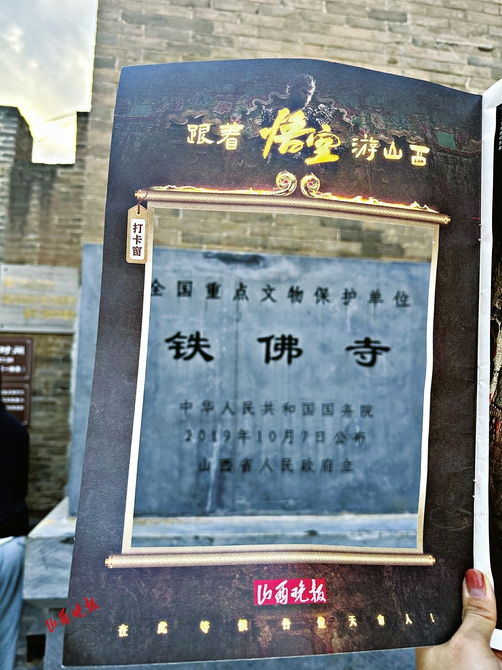 跟着悟空游山西
打卡窗
全国重点文物保护单位
铁佛寺
中华人民共和国国务院
2019年10月7日公布
山西省人民政府立
山西晚报
山西晚报
在此等候各位天命人！